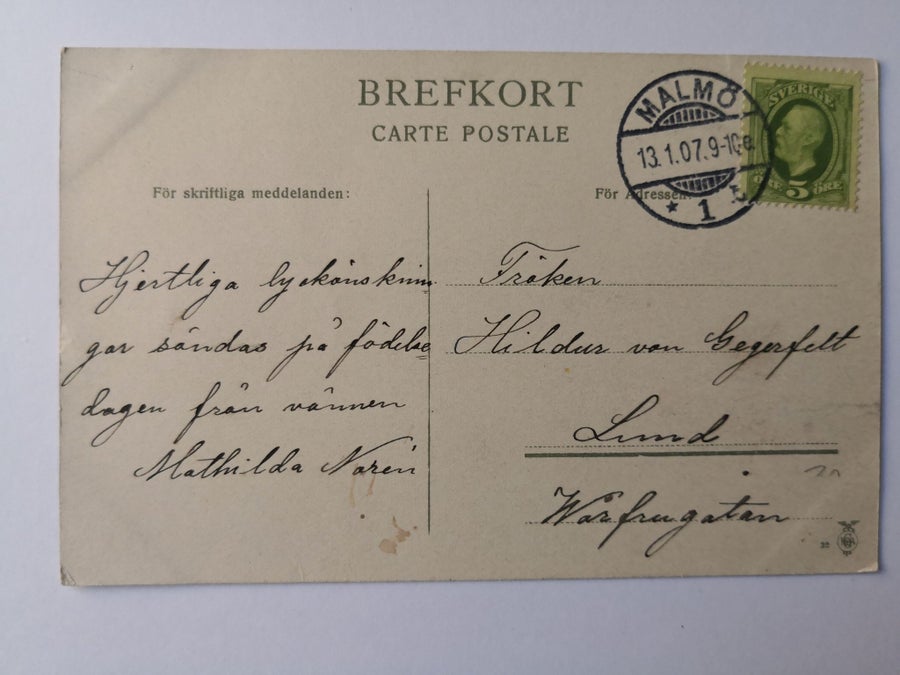 BREFKORT
CARTE POSTALE
SVERIGE
5 ÖRE
MALMÖ
13.1.07.9-10 e.
1
För skriftliga meddelanden:
För Adressen:
Hjertliga lyckönsknin
gar sändas på födelse
dagen från vännen
Mathilda Norén
Fröken
Hildur von Gegerfelt
Lund
Wårfrugatan